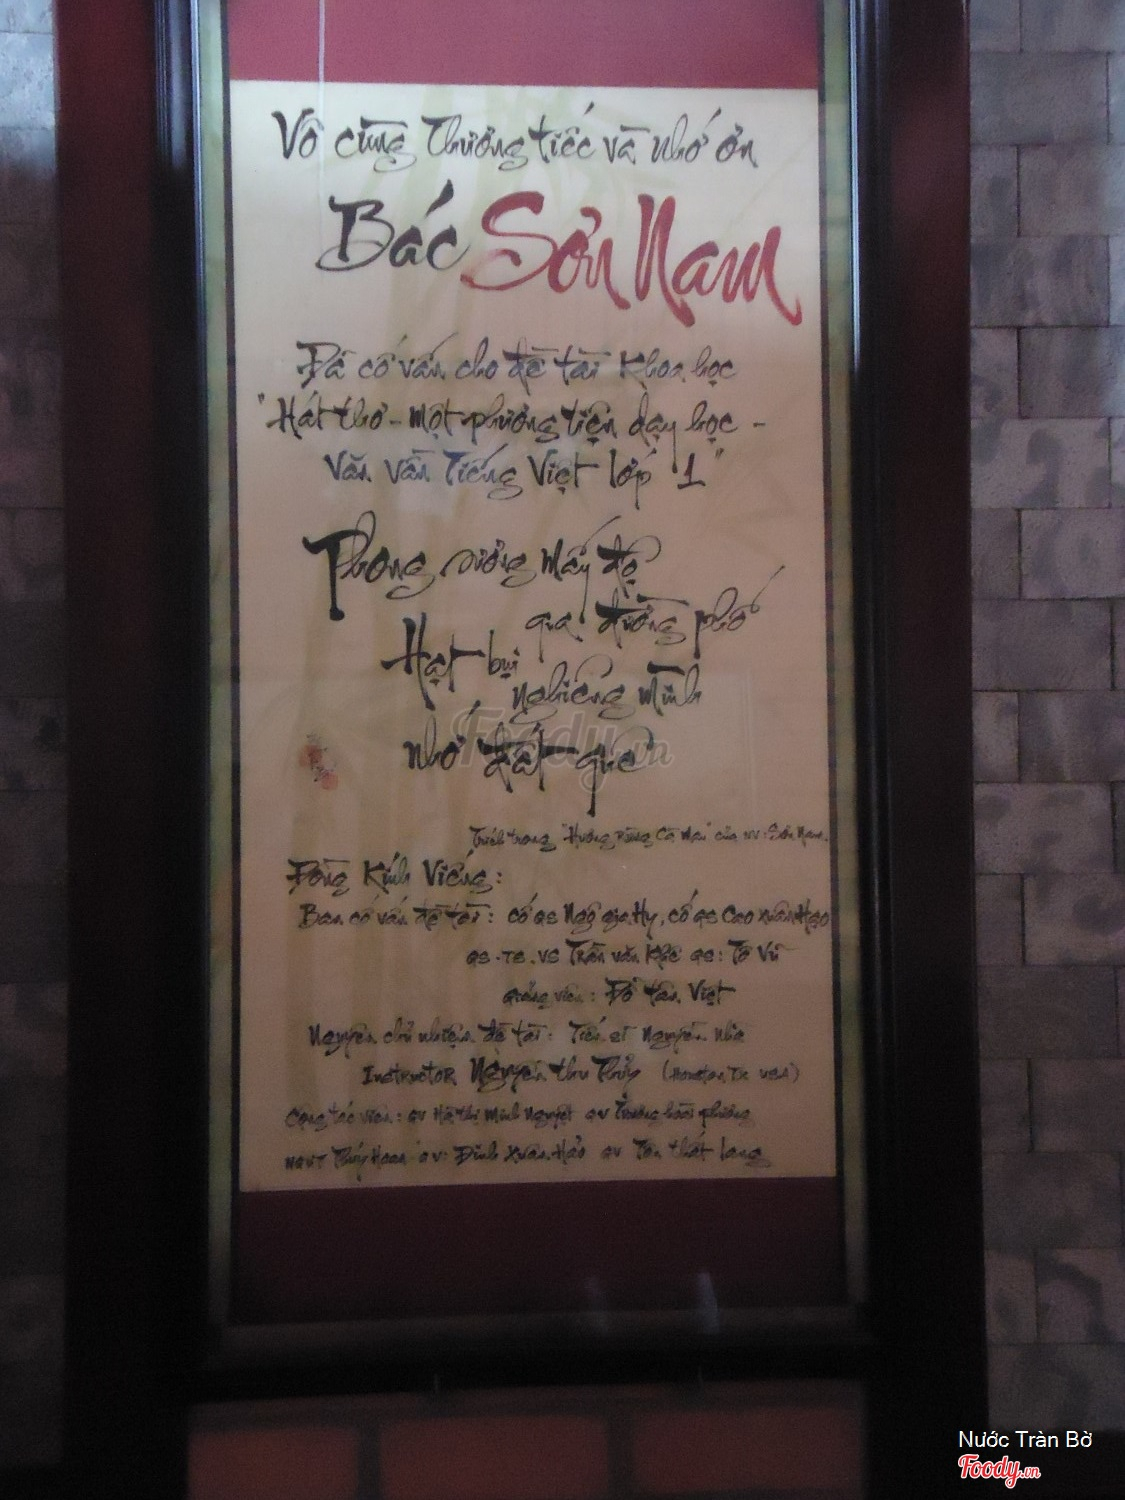 Vô cùng thương tiếc và nhớ ơn
Bác Sơn Nam
Đã cố vấn cho đề tài Khoa học
"Hát thơ - một phương tiện dạy học -
Vần Tiếng Việt lớp 1"
Phong sương mấy độ
qua đường phố
Hạt bụi
nghiêng mình
nhớ đất quê
Trích trong "Hương Rừng Cà Mau" của NV: Sơn Nam.
Đồng Kính Viếng:
Ban cố vấn đề tài: cố GS Ngô Gia Hy, cố GS Cao Xuân Hạo
GS.TS.VS Trần Văn Khê GS: Tô Vũ
Giảng viên: Đỗ Tân Việt
Nguyên chủ nhiệm đề tài: Tiến sĩ Nguyễn
Instructor Nguyễn Thu Thủy (Houston, TX USA)
Cộng tác viên: GV Hà Thị Minh Nguyệt GV Trương Hoài Phương
Thúy Hoan GV: Đinh Xuân Hảo GV Tôn Thất Lang
Foody.vn
Nước Tràn Bờ
Foody.vn